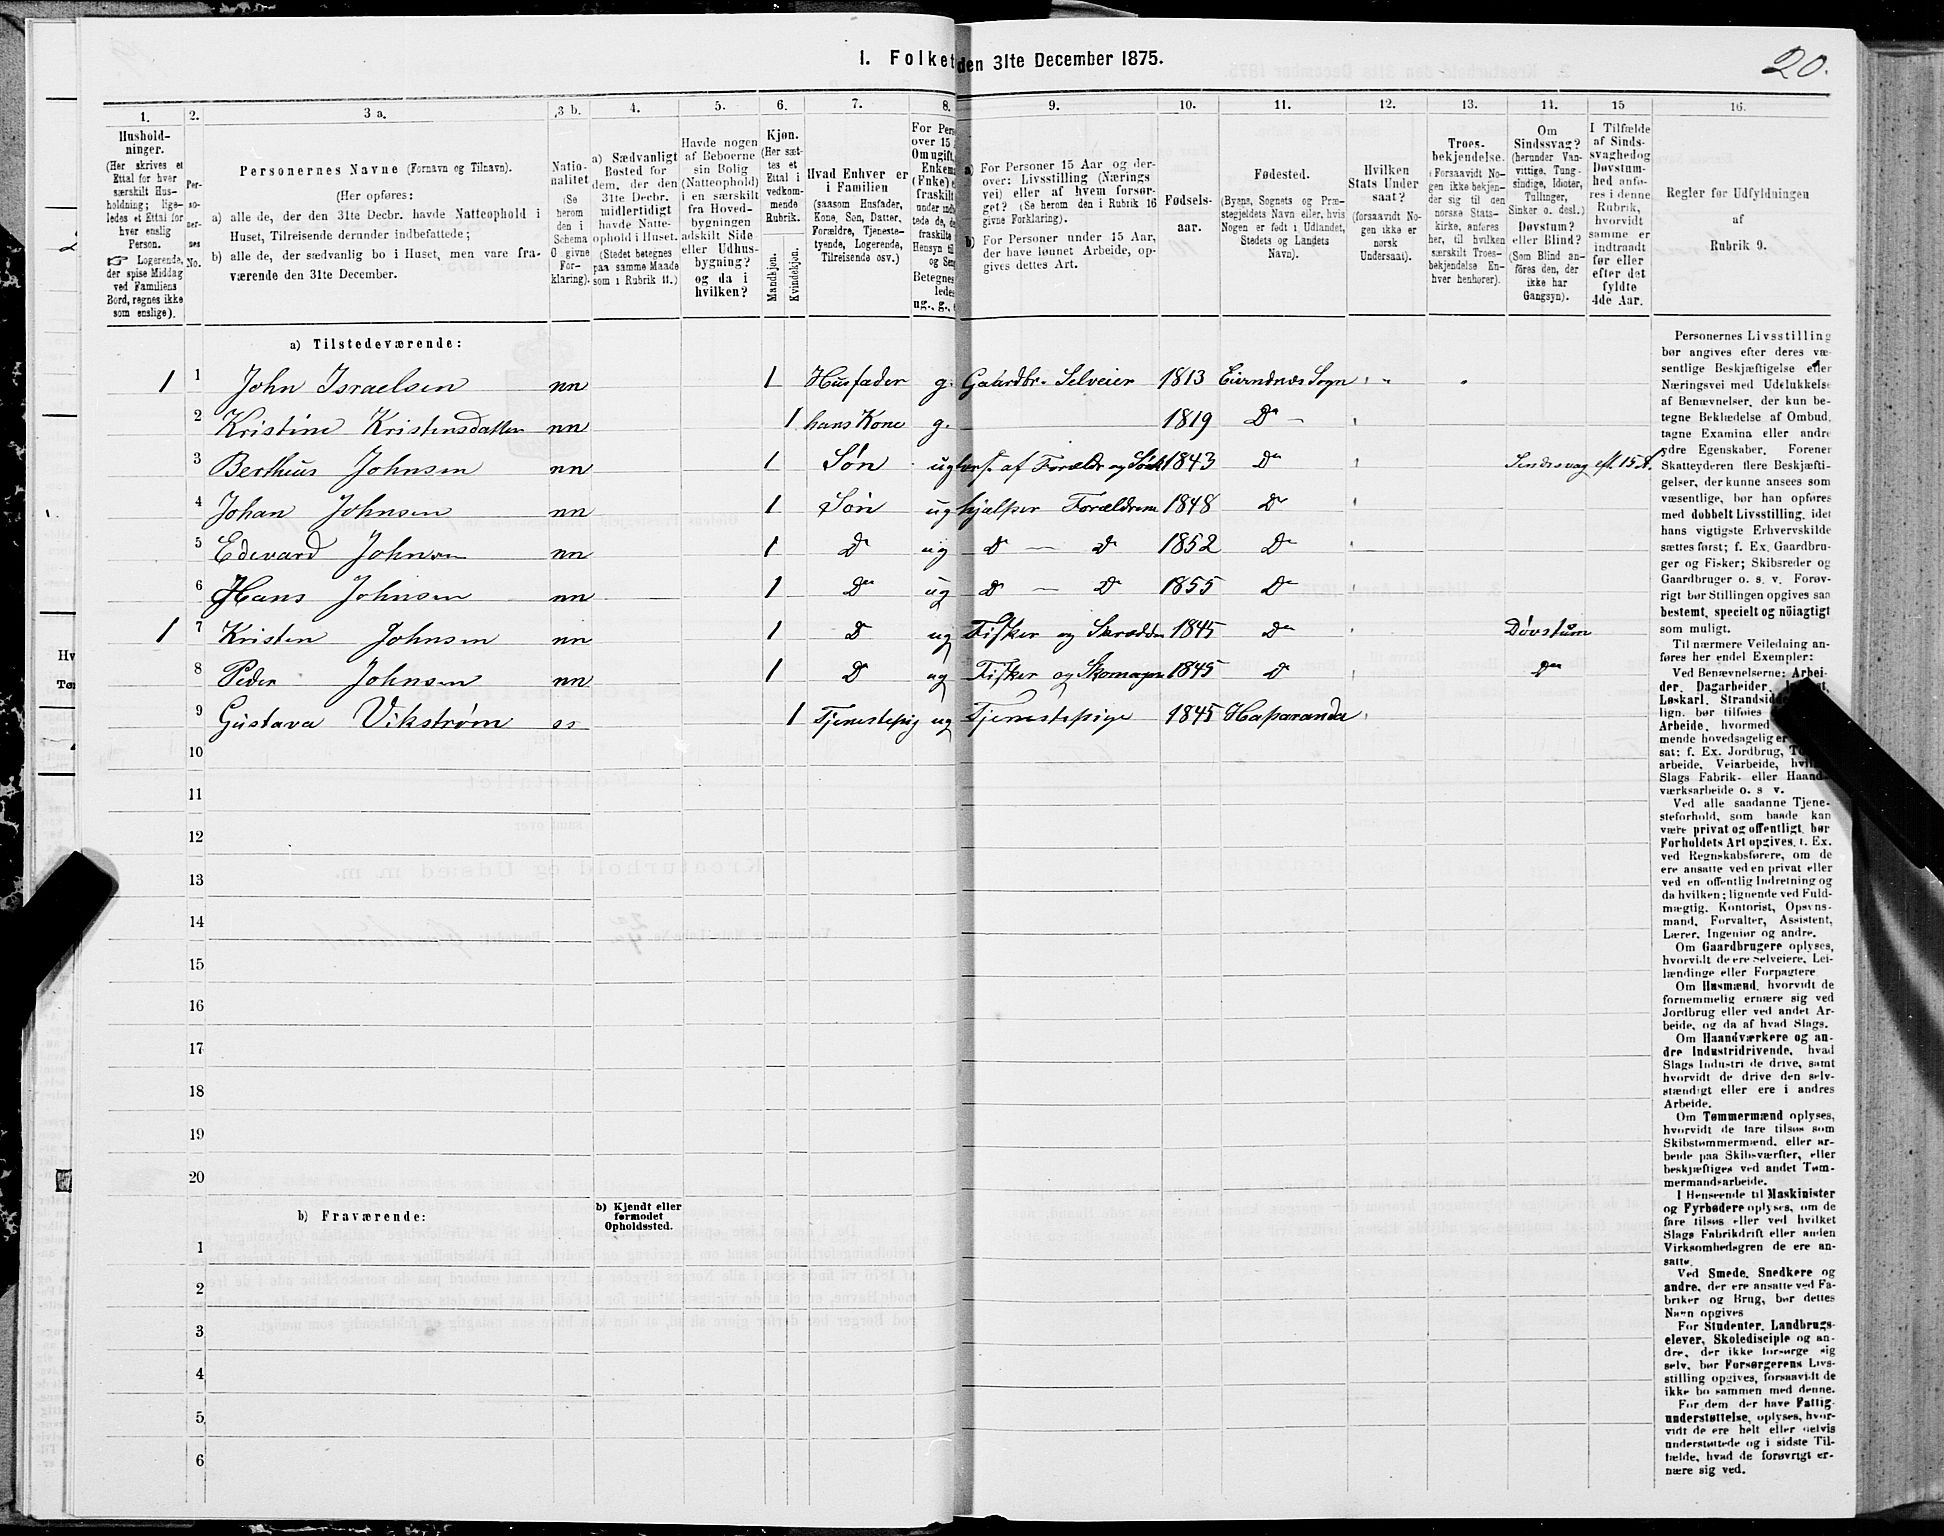 1. Folket den 31te December 1875.
20.
1.
Hushold-
ninger.
(Her skrives et
Ettal for hver
særskilt Hus-
holdning; lige-
ledes et Ettal for
hver enslig
Person.
☞ Logerende,
der spise Middag
ved Familiens
Bord, regnes ikke
som enslige).
2.
Per-
so-
ner-
nes
No.
3 a.
Personernes Navne (Fornavn og Tilnavn).
(Her opføres:
a) alle de, der den 31te Decbr. havde Natteophold i
Huset, Tilreisende derunder indbefattede;
b) alle de, der sædvanlig bo i Huset, men vare fra-
værende den 31te December.
3 b.
Natio-
nalitet
(Se
herom
den i
Schema
O givne
For-
klaring).
4.
a) Sædvanligt
Bosted for
dem, der den
31te Decbr.
midlertidigt
havde Natte-
ophold i Huset.
(Stedet betegnes
paa samme Maade
som i Rubrik 11.)
5.
Havde nogen
af Beboerne
sin Bolig
(Natteophold)
i en særskilt
fra Hoved-
bygningen
adskilt Side
eller Udhus-
bygning?
og da i
hvilken?
6.
Kjøn.
(Her sæt-
tes et
Ettal i
vedkom-
mende
Rubrik.
Mandkjøn.
Kvindekjøn.
7.
Hvad Enhver er
i Familien
(saasom Husfader,
Kone, Søn, Datter,
Forældre, Tjeneste-
tyende, Logerende,
Tilreisende osv.)
8.
For Pers
over 15
Om ugift,
Enkem
(Enke) e
fraskilt
under ind
tede de, de
fraskilte
Hensyn til
og Sen
Betegnes
ledes
ug., g.,
9.
a) For Personer 15 Aar og der-
over: Livsstilling (Nærings
vei) eller af hvem forsør-
get? (Se herom den i Rubrik 16
givne Forklaring).
b) For Personer under 15 Aar,
der have lønnet Arbeide, op-
gives dettes Art.
10.
Fødsels-
aar.
11.
Fødested.
(Byens, Sognets og Præ-
stegjeldets Navn eller, hvis
Nogen er født i Udlandet,
Stedets og Landets
Navn).
12.
Hvilken
Stats Under
saat?
(forsaavidt No-
gen ikke er
norsk
Undersaat).
13.
Troes-
bekjendelse.
(Forsaavidt No-
gen ikke bekjen-
der sig til den
norske Stats-
kirke, anføres
her, til hvilken
særskilt Troes-
bekjendelse En-
hver henhører).
14.
Om
Sindssvag?
(herunder Van-
vittige, Tung-
sindige, Idioter,
Tullinger,
Sinker o. desl.)
Døvstum?
eller Blind?
(Som Blind an-
føres den, der
ikke har
Gangsyn).
15
I Tilfælde
af Sinds-
svaghed og
Døvstum-
hed anfø-
res i denne
Rubrik,
hvorvidt
samme er
indtraadt
før eller
efter det
fyldte
4de Aar.
16.
Regler for Udfyldningen
af
Rubrik 9.
a) Tilstedeværende:
1 1 John Israelsen nn 1 Husfader g. Gaardbr. Selveier 1813 Eivindnes Sogn
2 Kristine Kristensdatter nn 1 hans Kone g. 1819 Do
3 Berthius Johnsen nn 1 Søn ug fors. af Forældr og 1843 Do Sindssvag eft. 15 A.
4 Johan Johnsen nn 1 Søn ug hjælper Forældrene 1848 Do
5 Edevard Johnsen nn 1 Do ug Do — Do 1852 Do
6 Hans Johnsen nn 1 Do ug Do — Do 1855 Do
1 7 Kristen Johnsen nn 1 Do ug Fisker og Skrædder 1845 Do Døvstum
8 Peder Johnsen nn 1 Do ug Fisker og Skomager 1845 Do Do
9 Gustava Vikstrøm ss 1 Tjenestepig ug Tjenestepige 1845 Haparanda
10
11
12
13
14
15
16
17
18
19
20
b) Fraværende:
b) Kjendt eller
formodet
Opholdssted.
1
2
3
4
5
6
Personernes Livsstilling
bør angives efter deres væ-
sentlige Beskjæftigelse eller
Næringsvei med Udelukkelse
af Benævnelser, der kun be-
tegne Beklædelse af Ombud,
tagne Examina eller andre
ydre Egenskaber. Forener
Skatteyderen flere Beskjæfti-
gelser, der kunne ansees som
væsentlige, bør han opføres
med dobbelt Livsstilling, idet
hans vigtigste Erhvervskilde
sættes først; f. Ex. Gaardbru-
ger og Fisker; Skibsreder og
Gaardbruger o. s. v. Forøv-
rigt bør Stillingen opgives saa
bestemt, specielt og nöiagtigt
som muligt.
Til nærmere Veiledning an-
føres her endel Exempler:
Ved Benævnelserne: Arbei-
der, Dagarbeider,
Løskarl, Strandsidde
lign. bør tilføies
Arbeide, hvormed
mende hovedsagelig er
sat: f. Ex. Jordbrug,
arbeide, Veiarbeide, hvil
Slags Fabrik- eller Haand-
værksarbeide o. s v.
Ved alle saadanne Tjene-
steforhold, som baade kan
være privat og offentligt, bør
Forholdets Art opgives, f. Ex.
ved Regnskabsførere, om de
ere ansatte ved en privat eller
ved en offentlig Indretning og
da hvilken; lignende ved Fuld-
mægtig, Kontorist, Opsyns-
mand, Forvalter, Assistent,
Lærer, Ingeniør og andre.
Om Gaardbrugere oplyses,
hvorvidt de ere Selveiere, Lei-
lændinge eller Forpagtere
Om Husmænd, hvorvidt de
fornemmelig ernære sig ved
Jordbrug eller ved andet Ar-
beide, og da af hvad Slags.
Om Haandværkere og an-
dre Industridrivende, hvad
Slags Industri de drive, samt
hvorvidt de drive den selv-
stændigt eller ere i andres
Arbeide.
Om Tømmermænd oplyses,
hvorvidt de fare tilsøs som
Skibstømmermænd, eller ar-
beide paa Skibsværfter, eller
beskjæftiges ved andet Tøm-
mermandsarbeide.
I Henseende til Maskinister
og Fyrbødere oplyses, om de
fare tilsøs eller ved hvilket
Slags Fabrikdrift eller anden
Virksomhedsgren de ere an-
satte.
Ved Smede, Snedkere og
andre, der ere ansatte ved Fa-
briker og Brug, bør dettes
Navn opgives
For Studenter, Landbrugs-
elever, Skoledisciple og an-
dre, der ikke forsørge sig
selv, bør Forsørgerens Livs-
stilling opgives, forsaavidt de
ikke bo sammen med denne.
For dem der have Fattig-
understøttelse, oplyses, hvor-
vidt de ere helt eller delvis
understøttede og i sidste Til-
fælde, hvad de forøvrigt er-
nære sig ved.